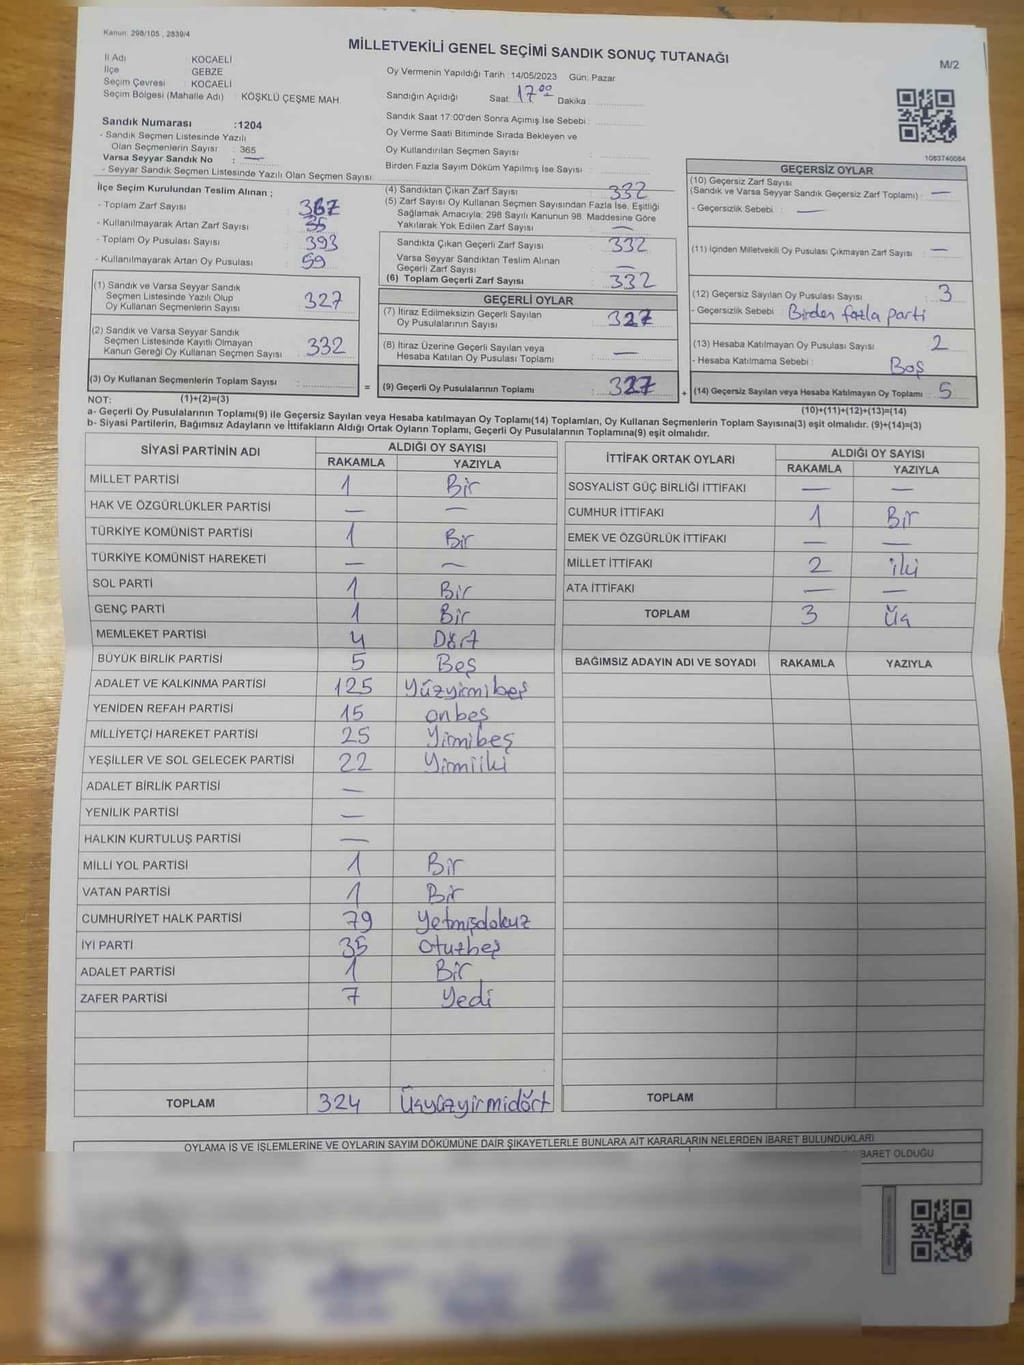 Kanun: 298/105 , 2839/4
MİLLETVEKİLİ GENEL SEÇİMİ SANDIK SONUÇ TUTANAĞI
M/2
İl Adı KOCAELİ
İlçe GEBZE
Seçim Çevresi KOCAELİ
Seçim Bölgesi (Mahalle Adı) : KÖŞKLÜ ÇEŞME MAH
Sandık Numarası :1204
- Sandık Seçmen Listesinde Yazılı
Olan Seçmenlerin Sayısı : 365
Varsa Seyyar Sandık No : —
- Seyyar Sandık Seçmen Listesinde Yazılı Olan Seçmen Sayısı :
Oy Vermenin Yapıldığı Tarih :14/05/2023 Gün: Pazar
Sandığın Açıldığı Saat : 17 00 Dakika :
Sandık Saat 17:00'den Sonra Açımış İse Sebebi :
Oy Verme Saati Bitiminde Sırada Bekleyen ve
Oy Kullandırılan Seçmen Sayısı :
Birden Fazla Sayım Döküm Yapılmış İse Sayısı :
1083740084
İlçe Seçim Kurulundan Teslim Alınan ;
- Toplam Zarf Sayısı : 367
- Kullanılmayarak Artan Zarf Sayısı : 35
- Toplam Oy Pusulası Sayısı : 393
- Kullanılmayarak Artan Oy Pusulası : 59
(1) Sandık ve Varsa Seyyar Sandık
Seçmen Listesinde Yazılı Olup
Oy Kullanan Seçmenlerin Sayısı : 327
(2) Sandık ve Varsa Seyyar Sandık
Seçmen Listesinde Kayıtlı Olmayan
Kanun Gereği Oy Kullanan Seçmen Sayısı : 332
(3) Oy Kullanan Seçmenlerin Toplam Sayısı :
NOT: (1)+(2)=(3)
(4) Sandıktan Çıkan Zarf Sayısı : 332
(5) Zarf Sayısı Oy Kullanan Seçmen Sayısından Fazla İse, Eşitliği
Sağlamak Amacıyla; 298 Sayılı Kanunun 98. Maddesine Göre
Yakılarak Yok Edilen Zarf Sayısı : —
Sandıkta Çıkan Geçerli Zarf Sayısı : 332
Varsa Seyyar Sandıktan Teslim Alınan
Geçerli Zarf Sayısı : —
(6) Toplam Geçerli Zarf Sayısı : 332
GEÇERLİ OYLAR
(7) İtiraz Edilmeksizin Geçerli Sayılan
Oy Pusulalarının Sayısı : 327
(8) İtiraz Üzerine Geçerli Sayılan veya
Hesaba Katılan Oy Pusulası Toplamı : —
= (9) Geçerli Oy Pusulalarının Toplamı : 327 +
GEÇERSİZ OYLAR
(10) Geçersiz Zarf Sayısı
(Sandık ve Varsa Seyyar Sandık Geçersiz Zarf Toplamı) : —
- Geçersizlik Sebebi : —
(11) İçinden Milletvekili Oy Pusulası Çıkmayan Zarf Sayısı : —
(12) Geçersiz Sayılan Oy Pusulası Sayısı : 3
- Geçersizlik Sebebi : Birden fazla parti
(13) Hesaba Katılmayan Oy Pusulası Sayısı : 2
- Hesaba Katılmama Sebebi : Boş
(14) Geçersiz Sayılan veya Hesaba Katılmayan Oy Toplamı : 5
(10)+(11)+(12)+(13)=(14)
a- Geçerli Oy Pusulalarının Toplamı(9) ile Geçersiz Sayılan veya Hesaba katılmayan Oy Toplamı(14) Toplamları, Oy Kullanan Seçmenlerin Toplam Sayısına(3) eşit olmalıdır. (9)+(14)=(3)
b- Siyasi Partilerin, Bağımsız Adayların ve İttifakların Aldığı Ortak Oyların Toplamı, Geçerli Oy Pusulalarının Toplamına(9) eşit olmalıdır.
SİYASİ PARTİNİN ADI ALDIĞI OY SAYISI
RAKAMLA YAZIYLA
MİLLET PARTİSİ 1 Bir
HAK VE ÖZGÜRLÜKLER PARTİSİ — —
TÜRKİYE KOMÜNİST PARTİSİ 1 Bir
TÜRKİYE KOMÜNİST HAREKETİ — —
SOL PARTİ 1 Bir
GENÇ PARTİ 1 Bir
MEMLEKET PARTİSİ 4 Dört
BÜYÜK BİRLİK PARTİSİ 5 Beş
ADALET VE KALKINMA PARTİSİ 125 Yüzyirmibeş
YENİDEN REFAH PARTİSİ 15 onbeş
MİLLİYETÇİ HAREKET PARTİSİ 25 Yirmibeş
YEŞİLLER VE SOL GELECEK PARTİSİ 22 Yirmiiki
ADALET BİRLİK PARTİSİ —
YENİLİK PARTİSİ —
HALKIN KURTULUŞ PARTİSİ —
MİLLİ YOL PARTİSİ 1 Bir
VATAN PARTİSİ 1 Bir
CUMHURİYET HALK PARTİSİ 79 Yetmişdokuz
İYİ PARTİ 35 otuzbeş
ADALET PARTİSİ 1 Bir
ZAFER PARTİSİ 7 Yedi
TOPLAM 324 Üçyüzyirmidört
İTTİFAK ORTAK OYLARI ALDIĞI OY SAYISI
RAKAMLA YAZIYLA
SOSYALİST GÜÇ BİRLİĞİ İTTİFAKI — —
CUMHUR İTTİFAKI 1 Bir
EMEK VE ÖZGÜRLÜK İTTİFAKI — —
MİLLET İTTİFAKI 2 iki
ATA İTTİFAKI — —
TOPLAM 3 Üç
BAĞIMSIZ ADAYIN ADI VE SOYADI RAKAMLA YAZIYLA
TOPLAM
OYLAMA İŞ VE İŞLEMLERİNE VE OYLARIN SAYIM DÖKÜMÜNE DAİR ŞİKAYETLERLE BUNLARA AİT KARARLARIN NELERDEN İBARET BULUNDUKLARI
BARET OLDUĞU